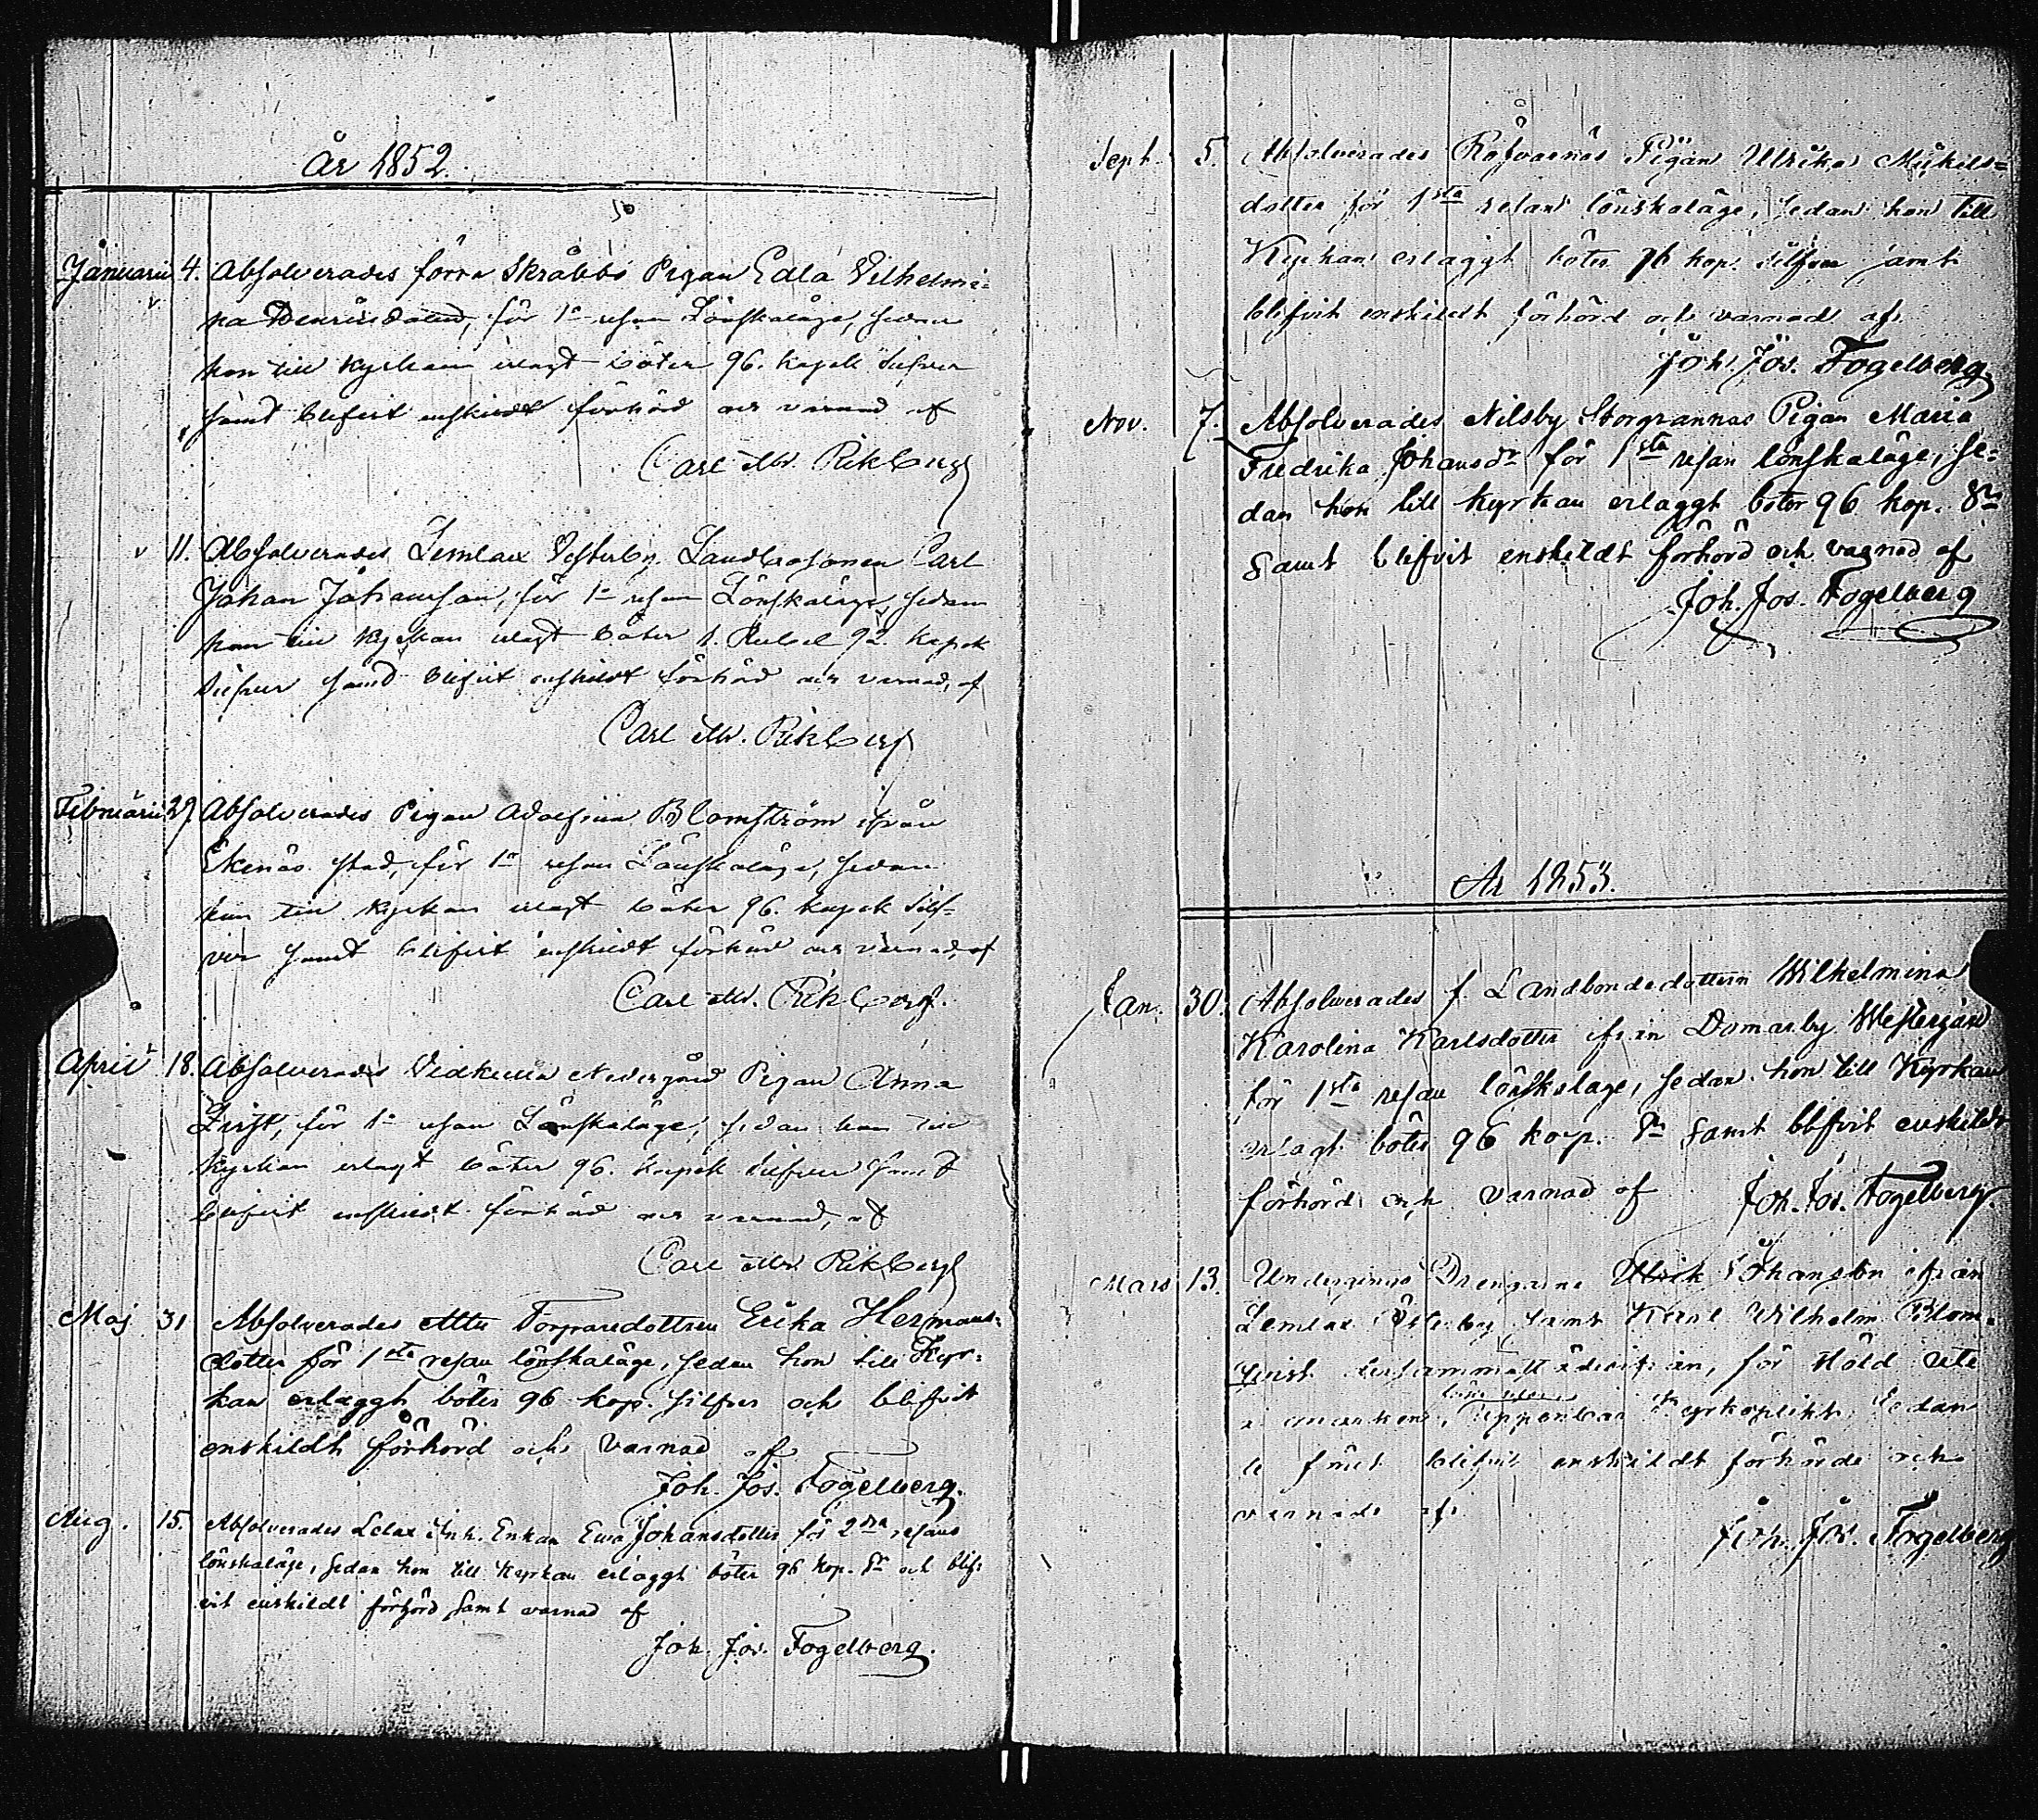 År 1852.
Januarii 4. Absolverades förra Skråbbö Pigan Edla Vilhelmi-
na för 1a resan Lönskaläge, sedan
hon till Kyrkan erlagt böter 96. kopek Silfver
samt blifvit enskildt förhörd och varnad af
Carl Mr. Rikberg
11. Absolverades Lemlax Vesterby Landbosonen Carl
Johan Johansson, för 1a resan Lönskaläge, sedan
han till Kyrkan erlagt böter 1. Rubel 92. kopek
Silfver samt blifvit enskildt förhörd och varnad, af
Carl Mr. Rikberg
Februarii 29. Absolverades Pigan Adolfina Blomström ifrån
Ekenäs stad, för 1a resan Lönskaläge, sedan
hon till Kyrkan erlagt böter 96. kopek Silf-
ver samt blifvit enskildt förhörd och varnad, af
Carl Mr. Rikberg.
April 18. Absolverades Nedergård Pigan Anna
för 1a resan Lönskaläge, sedan hon till
Kyrkan erlagt böter 96. kopek Silfver samt
blifvit enskildt förhörd och varnad, af
Carl Mr. Rikberg
Maj 31 Absolverades Attu Torparedottren Erika Hermans-
dotter för 1sta resan lönskaläge, sedan hon till Kyr-
kan erlaggt böter 96 kop. silfver och blifvit
enskildt förhörd och varnad af
Joh. Jos. Fogelberg.
Aug. 15. Absolverades Lelax Inh. Enkan Ewa Johansdotter för 2dra resans
lönskaläge, sedan hon till Kyrkan erlaggt böter 96 kop. Sr och blif-
vit enskildt förhörd samt varnad af
Joh. Jos. Fogelberg.
Sept. 5. Absolverades Räfvarnäs Pigan Ulrika Mickels-
dotter för 1sta resans lönskaläge, sedan hon till
Kyrkan erlaggt böter 96 kop. silfver jämte
blifvit enskildt förhörd och varnad af
Joh. Jos. Fogelberg.
Nov. 7. Absolverades Nilsby Storgrannas Pigan Maria
Fredrika Johansdr för 1sta resan lönskaläge, se-
dan hon till kyrkan erlaggt böter 96 kop. Sr
samt blifvit enskildt förhörd och varnad af
Joh. Jos. Fogelberg
År 1853.
Jan. 30. Absolverades f. Landbondedottern Wilhelmina
Karolina Karlsdotter ifrån Domarby Westergård
för 1sta resan lönskaläge, sedan hon till Kyrkan
erlagt böter 96 kop. Sr samt blifvit enskildt
förhörd och varnad af Joh. Jos. Fogelberg.
Mars 13. Undergingo Drengarne Ulrik Johansson ifrån
Lemlax Österby samt Karl Wilhelm Blom-
qvist dersammastädes ifrån, för stöld
uppenbar Kyrkoplikt, Sedan
de förut blifvit enskildt förhörde och
varnade af
Joh. Jos. Fogelberg